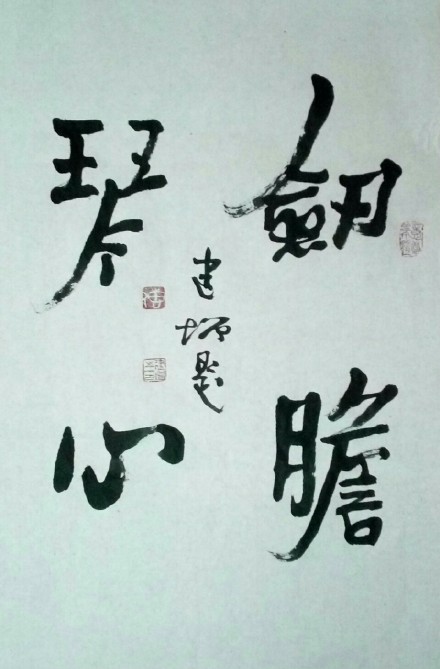 劍膽
琴心
建煩題